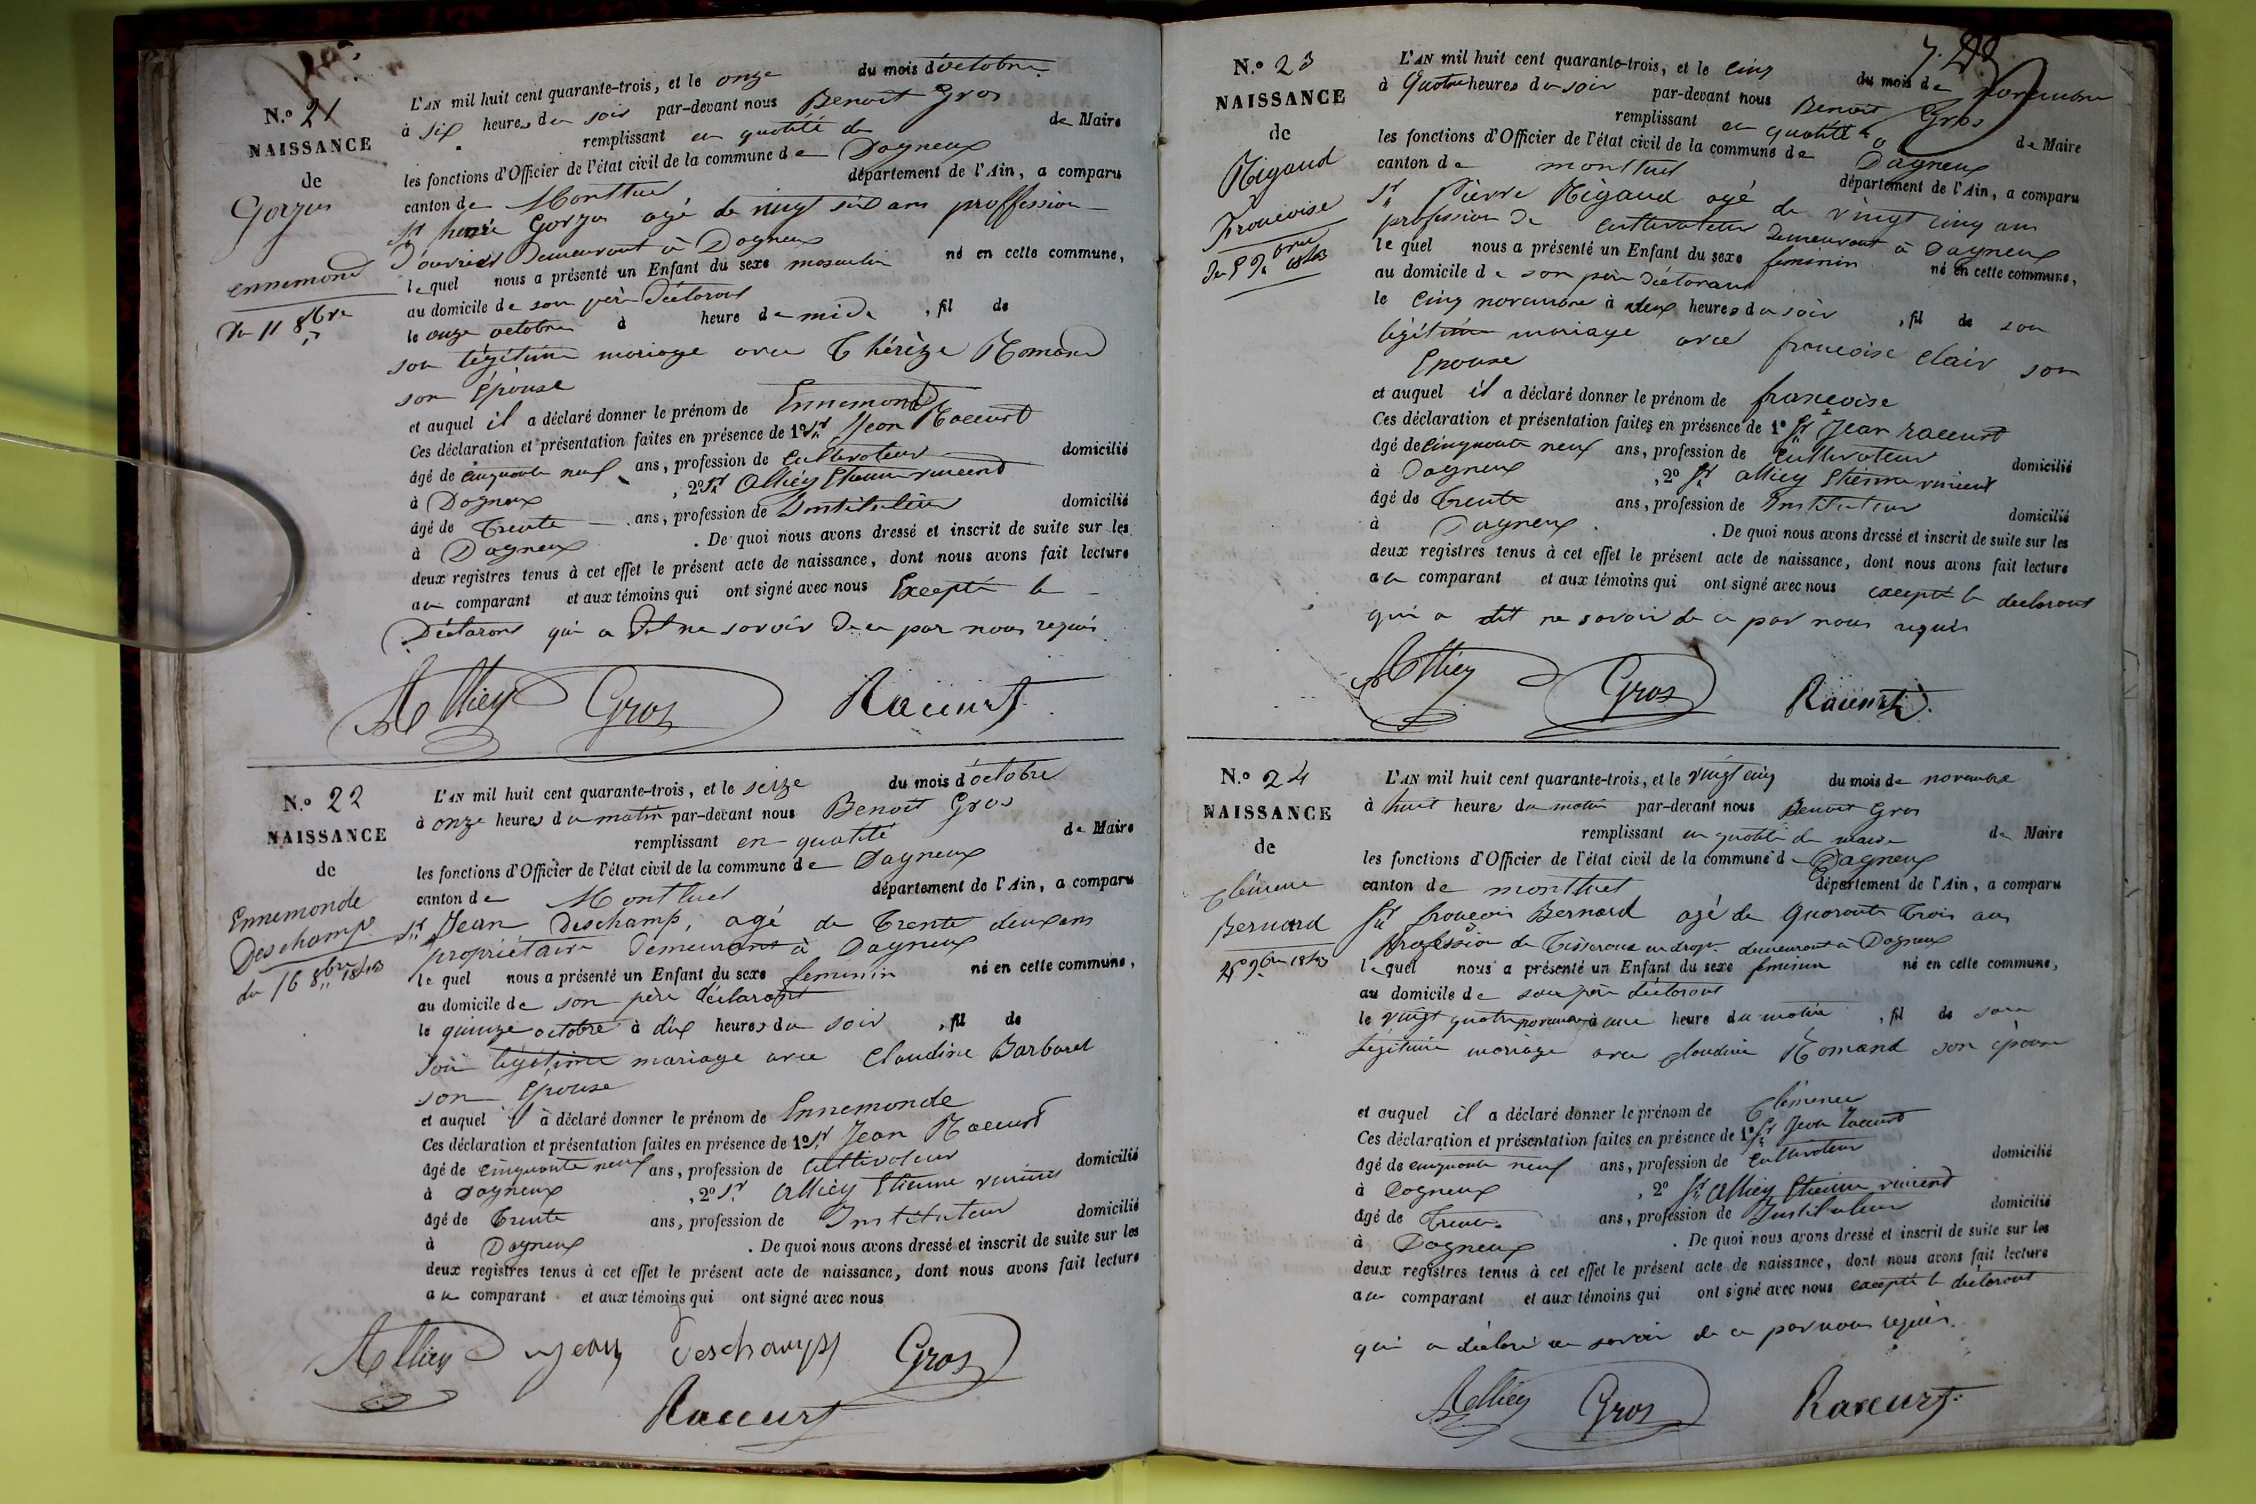 N.° 21
NAISSANCE
de
Gorzu
Ennemond
du 11 8bre
L'AN mil huit cent quarante-trois, et le onze du mois d'octobre
à six heures du soir par-devant nous Benoit Gros
remplissant en qualité de de Maire
les fonctions d'Officier de l'état civil de la commune de Dagneux
canton de Montluel département de l'Ain, a comparu
Sr Gorzu agé de vingt six ans proffession
d'ouvrier Demeurant à Dagneux
lequel nous a présenté un Enfant du sexe masculin né en cette commune,
au domicile de son père Déclarant
le onze octobre à heure de midi , fil de
son légitime mariage avec Thérèze Romand
son Épouse
et auquel il a déclaré donner le prénom de Ennemond
Ces déclaration et présentation faites en présence de 1° Sr Jean Raccurt
âgé de cinquante neuf ans, profession de Cultivateur domicilié
à Dagneux , 2° Sr Alliey Etienne vincend
âgé de Trente ans, profession de Instituteur domicilié
à Dagneux . De quoi nous avons dressé et inscrit de suite sur les
deux registres tenus à cet effet le présent acte de naissance, dont nous avons fait lecture
au comparant et aux témoins qui ont signé avec nous Excepté le
Déclarant qui a dit ne savoir de ce par nous requis
Alliey Gros Raccurt
N.° 22
NAISSANCE
de
Ennemonde
Deschamp
du 16 8bre 1843
L'AN mil huit cent quarante-trois, et le seize du mois d'octobre
à onze heures du matin par-devant nous Benoit Gros
remplissant en qualité de Maire
les fonctions d'Officier de l'état civil de la commune de Dagneux
canton de Montluel département de l'Ain, a comparu
Sr Jean Deschamp, agé de Trente deux ans
propriétaire Demeurant à Dagneux
lequel nous a présenté un Enfant du sexe feminin né en cette commune,
au domicile de son père déclarant
le quinze octobre à dix heures du soir , fil de
son légitime mariage avec Claudine Barbaret
son Epouse
et auquel il a déclaré donner le prénom de Ennemonde
Ces déclaration et présentation faites en présence de 1° Sr Jean Raccurt
âgé de cinquante neuf ans, profession de Cultivateur domicilié
à Dagneux , 2° Sr Alliey Etienne vincend
âgé de Trente ans, profession de Instituteur domicilié
à Dagneux . De quoi nous avons dressé et inscrit de suite sur les
deux registres tenus à cet effet le présent acte de naissance, dont nous avons fait lecture
au comparant et aux témoins qui ont signé avec nous
Alliey jean deschamps Gros
Raccurt
N.° 23
NAISSANCE
de
Rigaud
Francoise
du 5 9bre 1843
L'AN mil huit cent quarante-trois, et le cinq du mois de novembre
à quatre heures du soir par-devant nous Benoit Gros
remplissant en qualité de Maire
les fonctions d'Officier de l'état civil de la commune de Dagneux
canton de montluel département de l'Ain, a comparu
Sr Pierre Rigaud agé de vingt cinq ans
profession de cultivateur Demeurant à Dagneux
lequel nous a présenté un Enfant du sexe feminin né en cette commune,
au domicile de son père Déclarant
le cinq novembre à deux heures du soir , fil de son
légitime mariage avec francoise Clair son
Epouse
et auquel il a déclaré donner le prénom de francoise
Ces déclaration et présentation faites en présence de 1° Sr Jean raccurt
âgé de cinquante neuf ans, profession de Cultivateur domicilié
à Dagneux , 2° Sr Alliey Etienne vincent
âgé de Trente ans, profession de Instituteur domicilié
à Dagneux . De quoi nous avons dressé et inscrit de suite sur les
deux registres tenus à cet effet le présent acte de naissance, dont nous avons fait lecture
au comparant et aux témoins qui ont signé avec nous excepté le declarant
qui a dit ne savoir de ce par nous requis
Alliey Gros Raccurt
N.° 24
NAISSANCE
de
Clémence
Bernard
9bre 1843
L'AN mil huit cent quarante-trois, et le vingt cinq du mois de novembre
à huit heures du matin par-devant nous Benoit Gros
remplissant en qualité de maire de Maire
les fonctions d'Officier de l'état civil de la commune de Dagneux
canton de montluel département de l'Ain, a comparu
Sr francois Bernard agé de quarante trois ans
profession de Tisserand en drap demeurant à Dagneux
lequel nous a présenté un Enfant du sexe feminin né en cette commune,
au domicile de son père déclarant
le vingt quatre novembre à une heure du matin , fil de son
légitime mariage avec claudine Romand son épouse
et auquel il a déclaré donner le prénom de Clémence
Ces déclaration et présentation faites en présence de 1° Sr Jean raccurt
âgé de cinquante neuf ans, profession de Cultivateur domicilié
à Dagneux , 2° Sr Alliey Etienne vincend
âgé de Trente ans, profession de Instituteur domicilié
à Dagneux . De quoi nous avons dressé et inscrit de suite sur les
deux registres tenus à cet effet le présent acte de naissance, dont nous avons fait lecture
au comparant et aux témoins qui ont signé avec nous excepté le declarant
qui a déclaré ne savoir de ce par nous requis.
Alliey Gros Raccurt